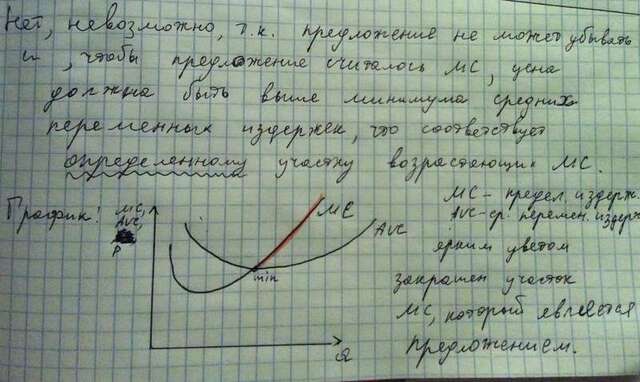 Нет, невозможно, т.к. предложение не может убывать
и, чтобы предложение считалось MC, цена
должна быть выше минимума средних
переменных издержек, что соответствует
определенному участку возрастающих MC.
График:
MC,
AVC,
P
MC
AVC
min
Q
MC - предел. издерж.
AVC-ср. перемен. издерж
ярким цветом
закрашен участок
MC, который является
предложением.